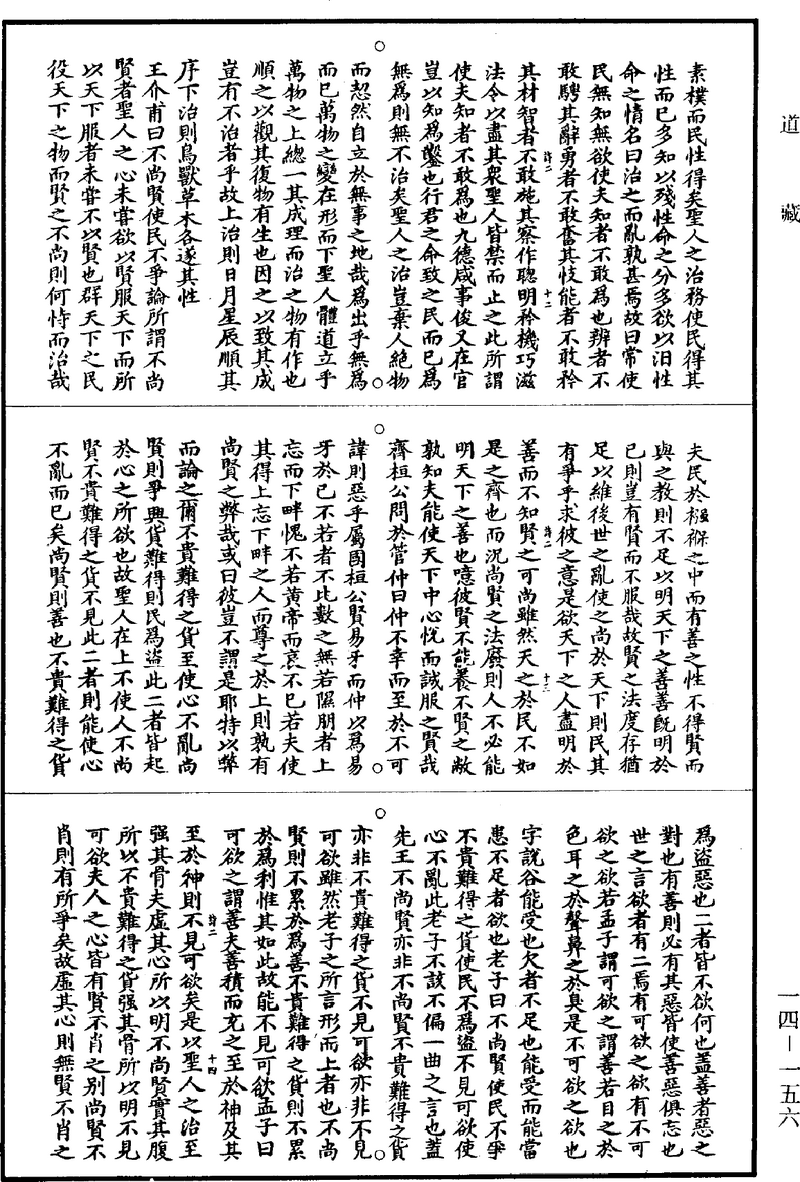 道藏
素樸而民性得矣聖人之治務使民得其
性而已多知以殘性命之分多欲以汨性
命之情名曰治之而亂孰甚焉故曰常使
民無知無欲使夫知者不敢為也辨者不
敢騁其辭勇者不敢奮其忮能者不敢矜
其材智者不敢施其察作聰明矜機巧滋
法令以盡其衆聖人皆禁而止之此所謂
使夫知者不敢為也九德咸事俊乂在官
豈以知為鑿也行君之命致之民而已為
無為則無不治矣聖人之治豈棄人絕物
而恝然自立於無事之地哉為出乎無為
而已萬物之變在形而下聖人體道立乎
萬物之上總一其成理而治之物有作也
順之以觀其復物有生也因之以致其成
豈有不治者乎故上治則日月星辰順其
序下治則鳥獸草木各遂其性
王介甫曰不尚賢使民不爭論所謂不尚
賢者聖人之心未嘗欲以賢服天下而所
以天下服者未嘗不以賢也群天下之民
役天下之物而賢之不尚則何恃而治哉
夫民於襁褓之中而有善之性不得賢而
與之教則不足以明天下之善善旣明於
已則豈有賢而不服哉故賢之法度存猶
足以維後世之亂使之尚於天下則民其
有爭乎求彼之意是欲天下之人盡明於
善而不知賢之可尚雖然天之於民不如
是之齊也而況尚賢之法廢則人不必能
明天下之善也噫彼賢不能養不賢之敝
孰知夫能使天下中心悅而誠服之賢哉
齊桓公問於管仲曰仲不幸而至於不可
諱則惡乎屬國桓公賢易牙而仲以為易
牙於已不若者不比數之無若隰朋者上
忘而下畔愧不若黃帝而哀不已若夫使
其得上忘下畔之人而尊之於上則孰有
尚賢之弊哉或曰彼豈不謂是耶特以弊
而論之爾不貴難得之貨至使心不亂尚
賢則爭興貨難得則民為盜此二者皆起
於心之所欲也故聖人在上不使人不尚
賢不貴難得之貨不見此二者則能使心
不亂而已矣尚賢則善也不貴難得之貨
為盜惡也二者皆不欲何也蓋善者惡之
對也有善則必有其惡皆使善惡俱忘也
世之言欲者有二焉有可欲之欲有不可
欲之欲若孟子謂可欲之謂善若目之於
色耳之於聲鼻之於臭是不可欲之欲也
字說谷能受也欠者不足也能受而能當
患不足者欲也老子曰不尚賢使民不爭
不貴難得之貨使民不為盜不見可欲使
心不亂此老子不該不偏一曲之言也蓋
先王不尚賢亦非不尚賢不貴難得之貨
亦非不貴難得之貨不見可欲亦非不見
可欲雖然老子之所言形而上者也不尚
賢則不累於為善不貴難得之貨則不累
於為利惟其如此故能不見可欲孟子曰
可欲之謂善夫善積而充之至於神及其
至於神則不見可欲矣是以聖人之治至
强其骨夫虛其心所以明不尚賢實其腹
所以不貴難得之貨强其骨所以明不見
可欲夫人之心皆有賢不肖之別尚賢不
肖則有所爭矣故虛其心則無賢不肖之
一四－一五六